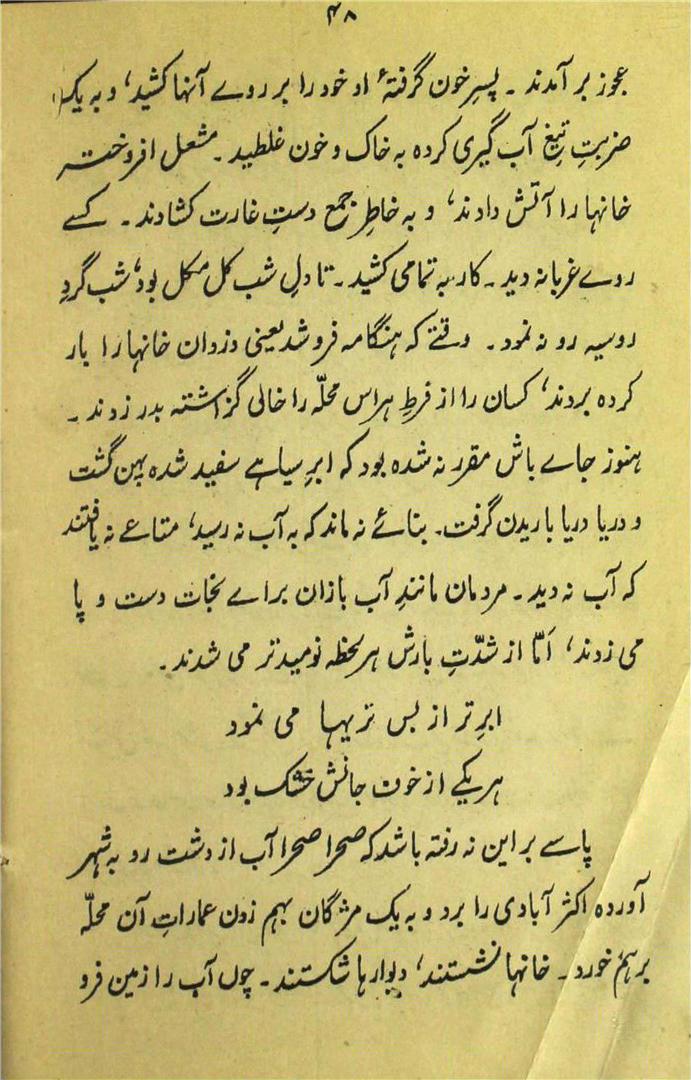 ۴۸
عجوز بر آمدند ۔ پسرِ خون گرفتۂ او خود را بر روے آنہا کشید، و بہ یک
ضربتِ تیغِ آب گیری کردہ بہ خاک و خون غلطید ۔ مشعل افروختہ
خانہا را آتش دادند، و بہ خاطرِ جمع دستِ غارت کشادند ۔ کسے
روے غریبانہ دید ۔ کار بہ تمامی کشید ۔ تا دلِ شب کل مکل بود، شب گردِ
روسیہ رو نہ نمود ۔ وقتے کہ ہنگامہ فرو شد یعنی دزدان خانہا را بار
کردہ بردند، کسان را از فرطِ ہراس محلّہ را خالی گزاشتہ بدر زدند ۔
ہنوز جاے باش مقرر نہ شدہ بود کہ ابرِ سیاہے سفید شدہ پہن گشت
و دریا دریا باریدن گرفت ۔ بنائے نہ ماند کہ بہ آب نہ رسید، متاعے نہ یافتند
کہ آب نہ دید ۔ مردمان مانندِ آب بازان براے نجات دست و پا
می زدند، اَمّا از شدّتِ بارش ہر لحظہ نومیدتر می شدند ۔
ابرِ تر از بس تریہا می نمود
ہر یکے از خون جانش خشک بود
پاسے بر این نہ رفتہ باشد کہ صحرا صحرا آب از دشت رو بہ شہر
آوردہ اکثر آبادی را برد و بہ یک مژگان بہم زدن عماراتِ آن محلّہ
برہم خورد ۔ خانہا نشستند، دیوارہا شکستند ۔ چوں آب را زمین فرو